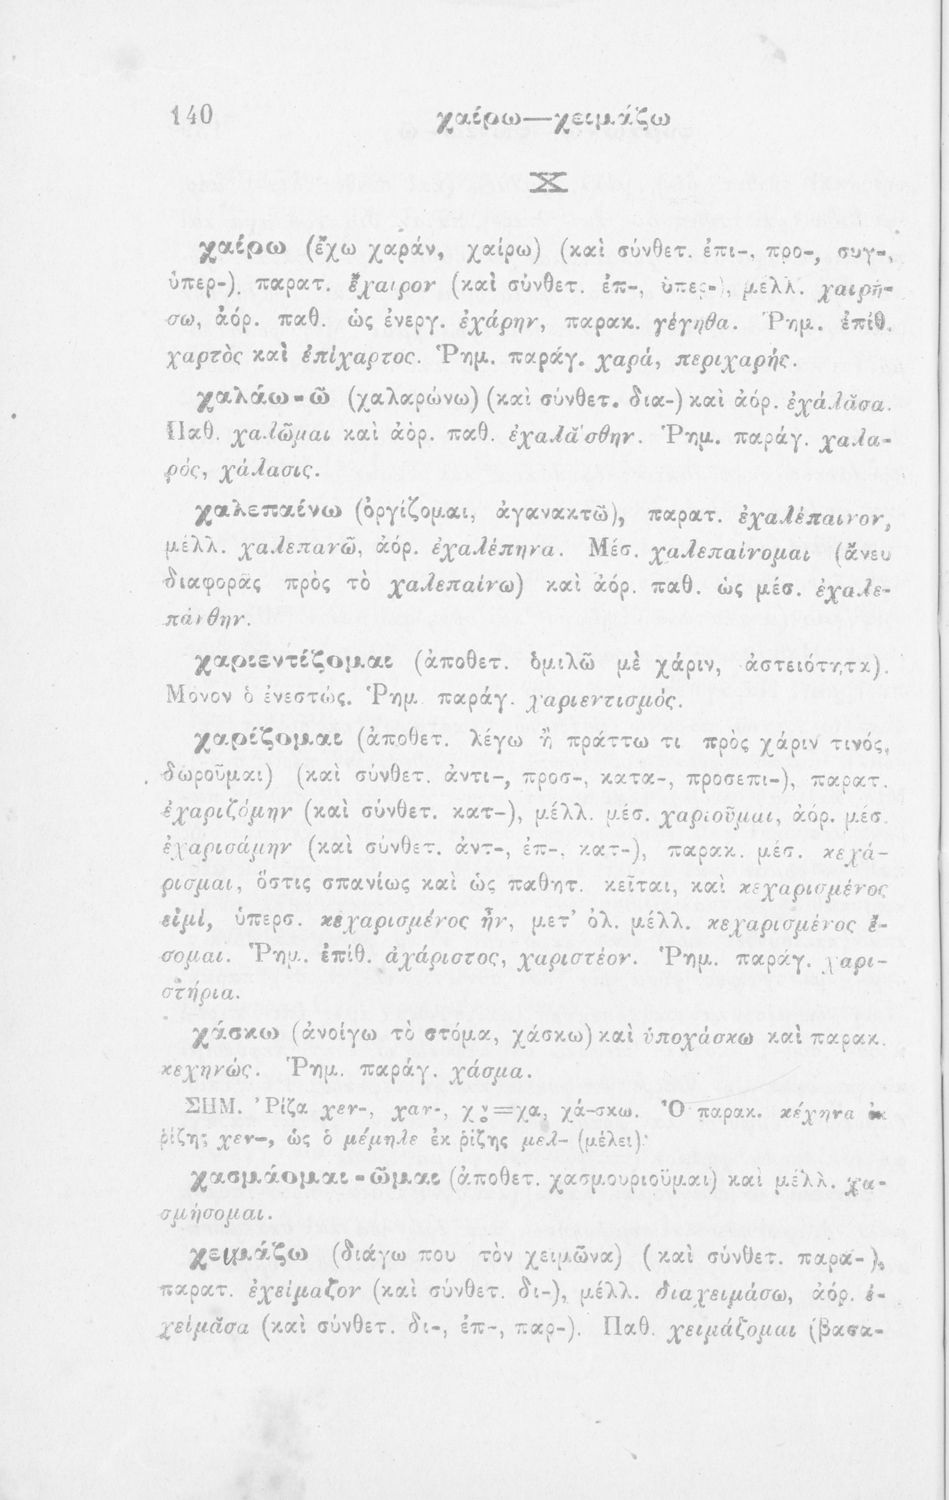 140 χαίρω—χειμάζω
Χ
χαίρω (ἔχω χαράν, χαίρω) (καὶ σύνθετ. ἐπι-, προ-, συγ-,
ὑπερ-), παρατ. ἔχαιρον (καὶ σύνθετ. ἐπ-, ὑπερ-), μέλλ. χαιρή-
σω, ἀόρ. παθ. ὡς ἐνεργ. ἐχάρην, παρακ. γέγηθα. Ῥημ. ἐπίθ.
χαρτὸς καὶ ἐπίχαρτος. Ῥημ. παράγ. χαρά, περιχαρής.
χαλάω-ῶ (χαλαρώνω) (καὶ σύνθετ. δια-) καὶ ἀόρ. ἐχάλᾰσα.
Παθ. χαλῶμαι καὶ ἀόρ. παθ. ἐχαλᾰ́σθην. Ῥημ. παράγ. χαλα-
ρός, χάλασις.
χαλεπαίνω (ὀργίζομαι, ἀγανακτῶ), παρατ. ἐχαλέπαινον,
μέλλ. χαλεπανῶ, ἀόρ. ἐχαλέπηνα. Μέσ. χαλεπαίνομαι (ἄνευ
διαφορᾶς πρὸς τὸ χαλεπαίνω) καὶ ἀόρ. παθ. ὡς μέσ. ἐχαλε-
πάνθην.
χαριεντίζομαι (ἀποθετ. ὁμιλῶ μὲ χάριν, ἀστειότητα).
Μόνον ὁ ἐνεστώς. Ῥημ. παράγ. χαριεντισμός.
χαρίζομαι (ἀποθετ. λέγω ἢ πράττω τι πρὸς χάριν τινός,
δωροῦμαι) (καὶ σύνθετ. ἀντι-, προσ-, κατα-, προσεπι-), παρατ.
ἐχαριζόμην (καὶ σύνθετ. κατ-), μέλλ. μέσ. χαριοῦμαι, ἀόρ. μέσ.
ἐχαρισάμην (καὶ σύνθετ. ἀντ-, ἐπ-, κατ-), παρακ. μέσ. κεχά-
ρισμαι, ὅστις σπανίως καὶ ὡς παθητ. κεῖται, καὶ κεχαρισμένος
εἰμί, ὑπερσ. κεχαρισμένος ἦν, μετ' ὀλ. μέλλ. κεχαρισμένος ἔ-
σομαι. Ῥημ. ἐπίθ. ἀχάριστος, χαριστέον. Ῥημ. παράγ. χαρι-
στήρια.
χάσκω (ἀνοίγω τὸ στόμα, χάσκω) καὶ ὑποχάσκω καὶ παρακ.
κεχηνώς. Ῥημ. παράγ. χάσμα.
ΣΗΜ. Ῥίζα χεν-, χαν-, χν=χα, χά-σκω. Ὁ παρακ. κέχηνα ἐκ
ῥίζης χεν-, ὡς ὁ μέμηλε ἐκ ῥίζης μελ- (μέλει).
χασμάομαι-ῶμαι (ἀποθετ. χασμουριοῦμαι) καὶ μέλλ. χα-
σμήσομαι.
χειμάζω (διάγω που τὸν χειμῶνα) (καὶ σύνθετ. παρα-),
παρατ. ἐχείμαζον (καὶ σύνθετ. δι-), μέλλ. διαχειμάσω, ἀόρ. ἐ-
χείμᾰσα (καὶ σύνθετ. δι-, ἐπ-, παρ-). Παθ. χειμάζομαι (βασα-